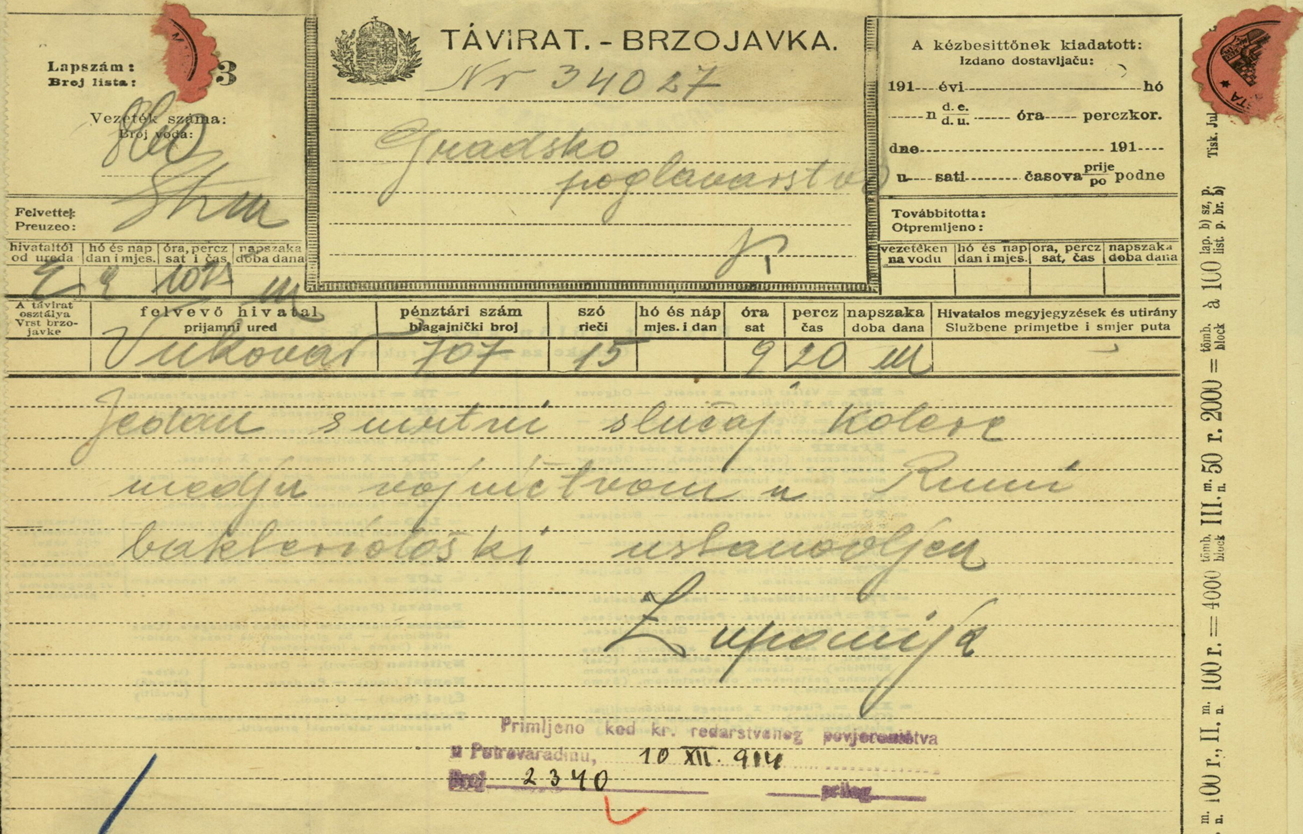 Lapszám:
Broj lista:
3
Vezeték száma:
Broj voda:
860
Felvettej:
Preuzeo:
hivataltól
od ureda
hó és nap
dan i mjes.
óra, percz
sat i čas
napszaka
doba dana
TÁVIRAT. - BRZOJAVKA.
Nr 34027
Gradsko
poglavarstvo
A kézbesittőnek kiadatott:
Izdano dostavljaču:
191 évi hó
n d. e. d. u. óra perczkor.
dne 191
u sati časova prije po podne
Továbbitotta:
Otpremljeno:
vezetéken
na vodu
hó és nap
dan i mjes.
óra, percz
sat, čas
napszaka
doba dana
A távirat
osztálya
Vrst brzo-
javke
felvevő hivatal
prijamni ured
pénztári szám
blagajnički broj
szó
rieči
hó és náp
mjes. i dan
óra
sat
percz
čas
napszaka
doba dana
Hivatalos megyjegyzések és utirány
Službene primjetbe i smjer puta
Vukovar 707 15 9 20 m
Jedan smrtni slučaj kolere
medju vojničtvom u Rumi
bakteriološki ustanovljen
Županija
Primljeno kod kr. redarstvenog povjereništva
u Petrovaradinu, 10 XII. 914
Broj 2340 prilog
m. n. 100 r., II. m. n. 100 r. = 4000 tömb. block III. m. n. 50 r. 2000 = tömb. block à 100 lap. b) sz, p. list p. br. b) Tisk. Jul.